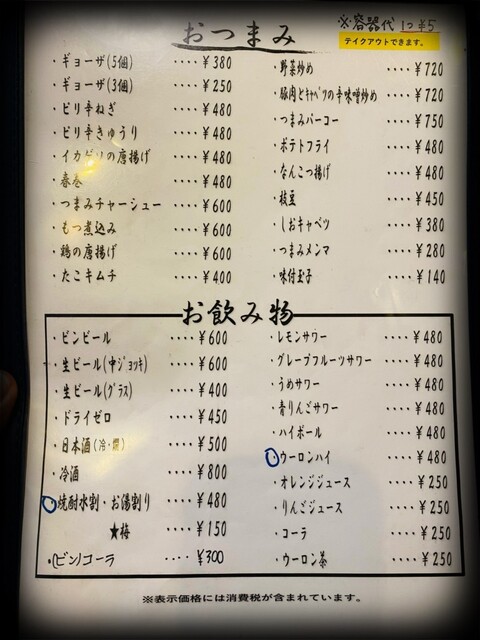 おつまみ
※容器代 1つ ¥5
テイクアウトできます。
・ギョーザ(5個) ････¥380
・ギョーザ(3個) ････¥250
・ピリ辛ねぎ ････¥480
・ピリ辛きゅうり ････¥480
・イカゲソの唐揚げ ････¥480
・春巻 ････¥480
・つまみチャーシュー ････¥600
・もつ煮込み ････¥600
・鶏の唐揚げ ････¥600
・たこキムチ ････¥400
・野菜炒め ････¥720
・豚肉とキャベツの辛味噌炒め ････¥720
・つまみパーコー ････¥750
・ポテトフライ ････¥480
・なんこつ揚げ ････¥480
・枝豆 ････¥450
・しおキャベツ ････¥380
・つまみメンマ ････¥280
・味付玉子 ････¥140
お飲み物
・ビンビール ････¥600
・生ビール(中ジョッキ) ････¥600
・生ビール(グラス) ････¥400
・ドライゼロ ････¥450
・日本酒(冷・燗) ････¥500
・冷酒 ････¥800
・焼酎水割・お湯割り ････¥480
★梅 ････¥150
・(ビン)コーラ ････¥300
・レモンサワー ････¥480
・グレープフルーツサワー ････¥480
・うめサワー ････¥480
・青りんごサワー ････¥480
・ハイボール ････¥480
・ウーロンハイ ････¥480
・オレンジジュース ････¥250
・りんごジュース ････¥250
・コーラ ････¥250
・ウーロン茶 ････¥250
※表示価格には消費税が含まれています。